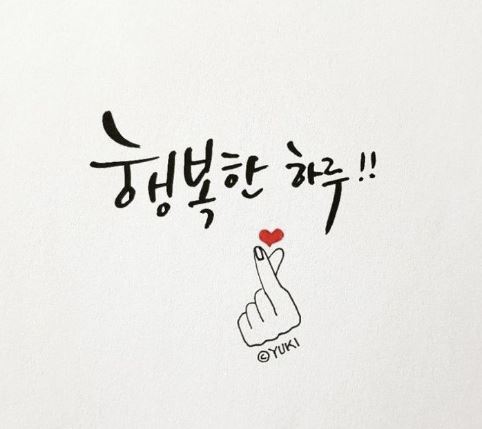 행복한 하루!!
©YUKI